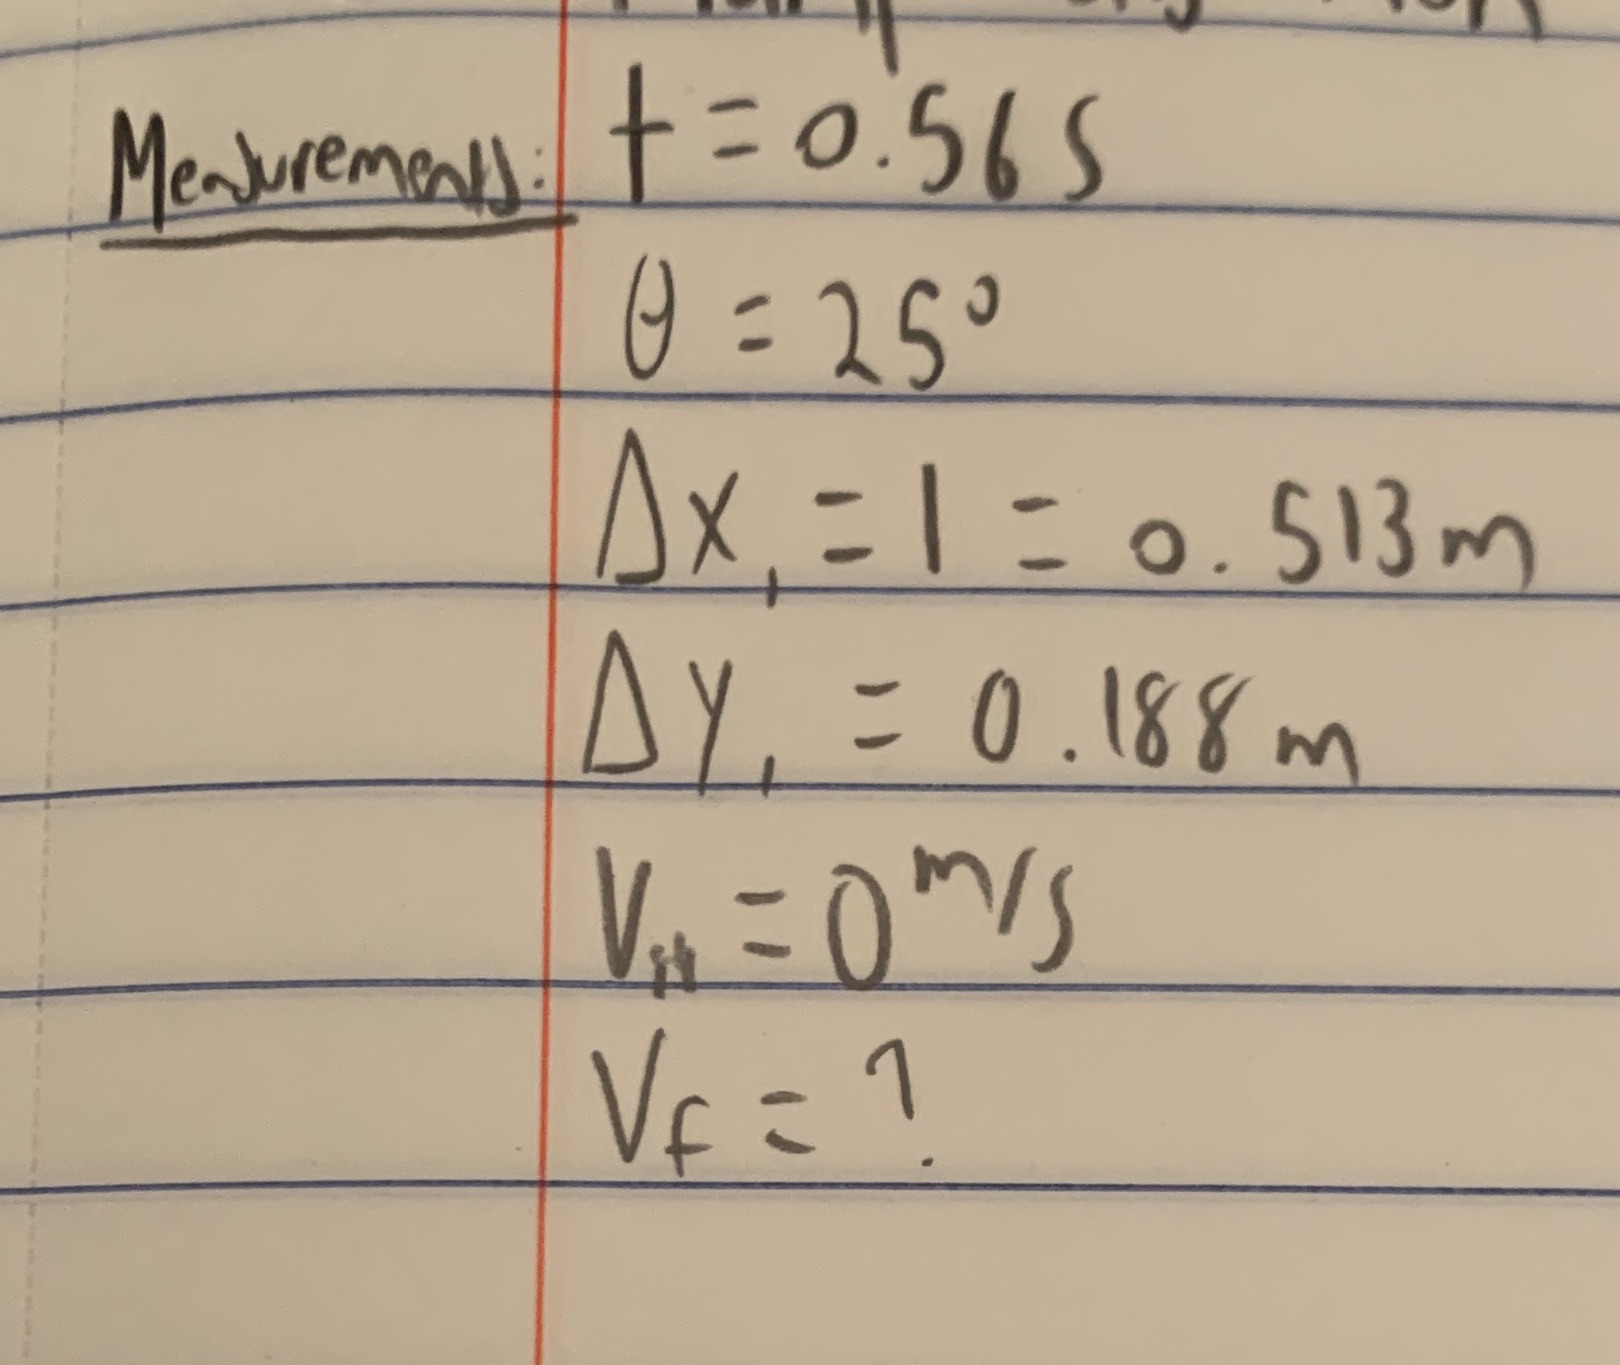 Measurements: t = 0.56 s
θ = 25°
Δx₁ = 1 = 0.513 m
Δy₁ = 0.188 m
V = 0 m/s
Vf = ?